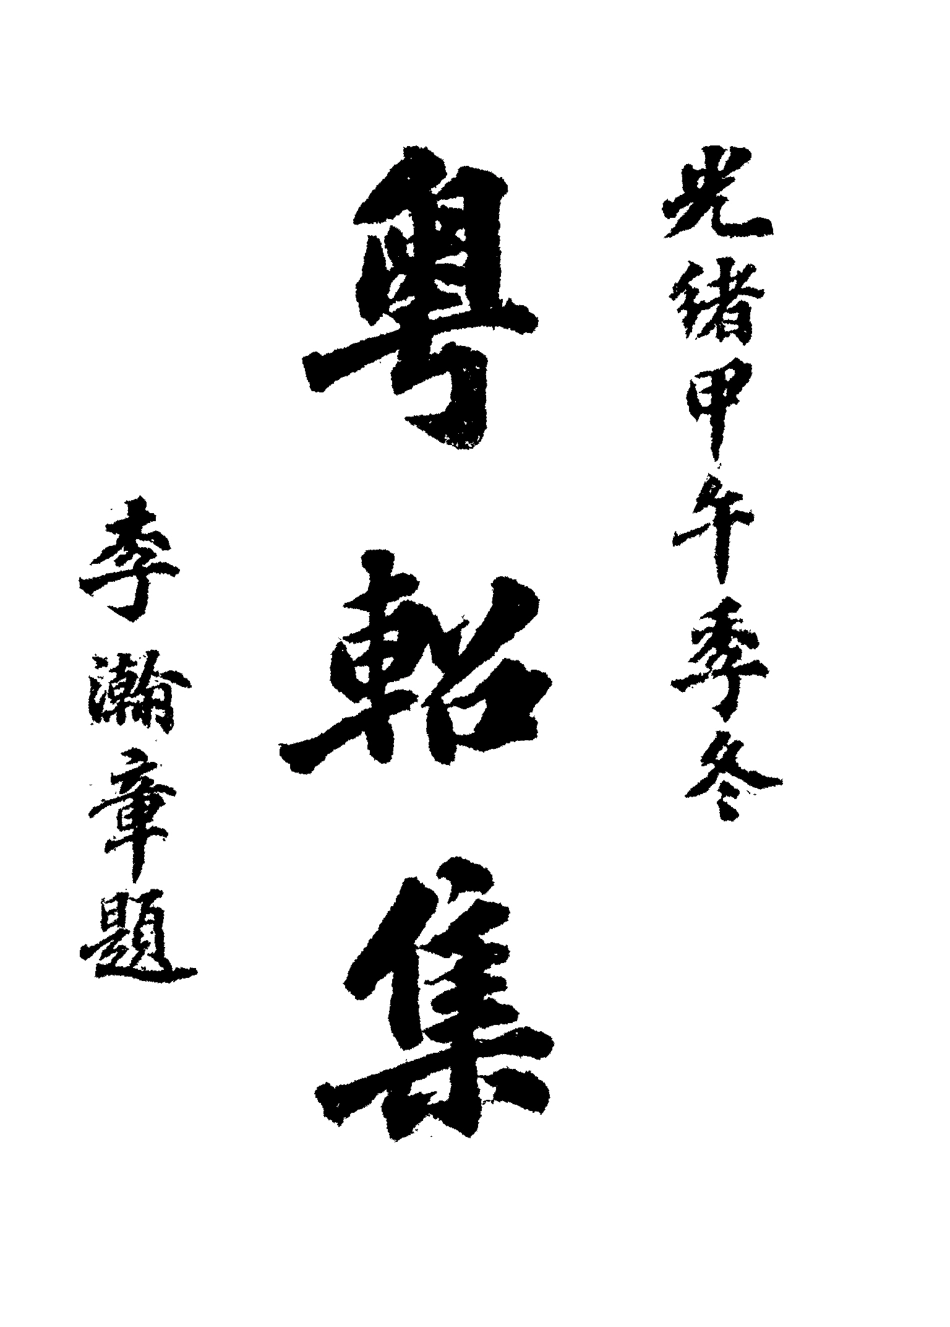 光緒甲午季冬
粵軺集
李瀚章題